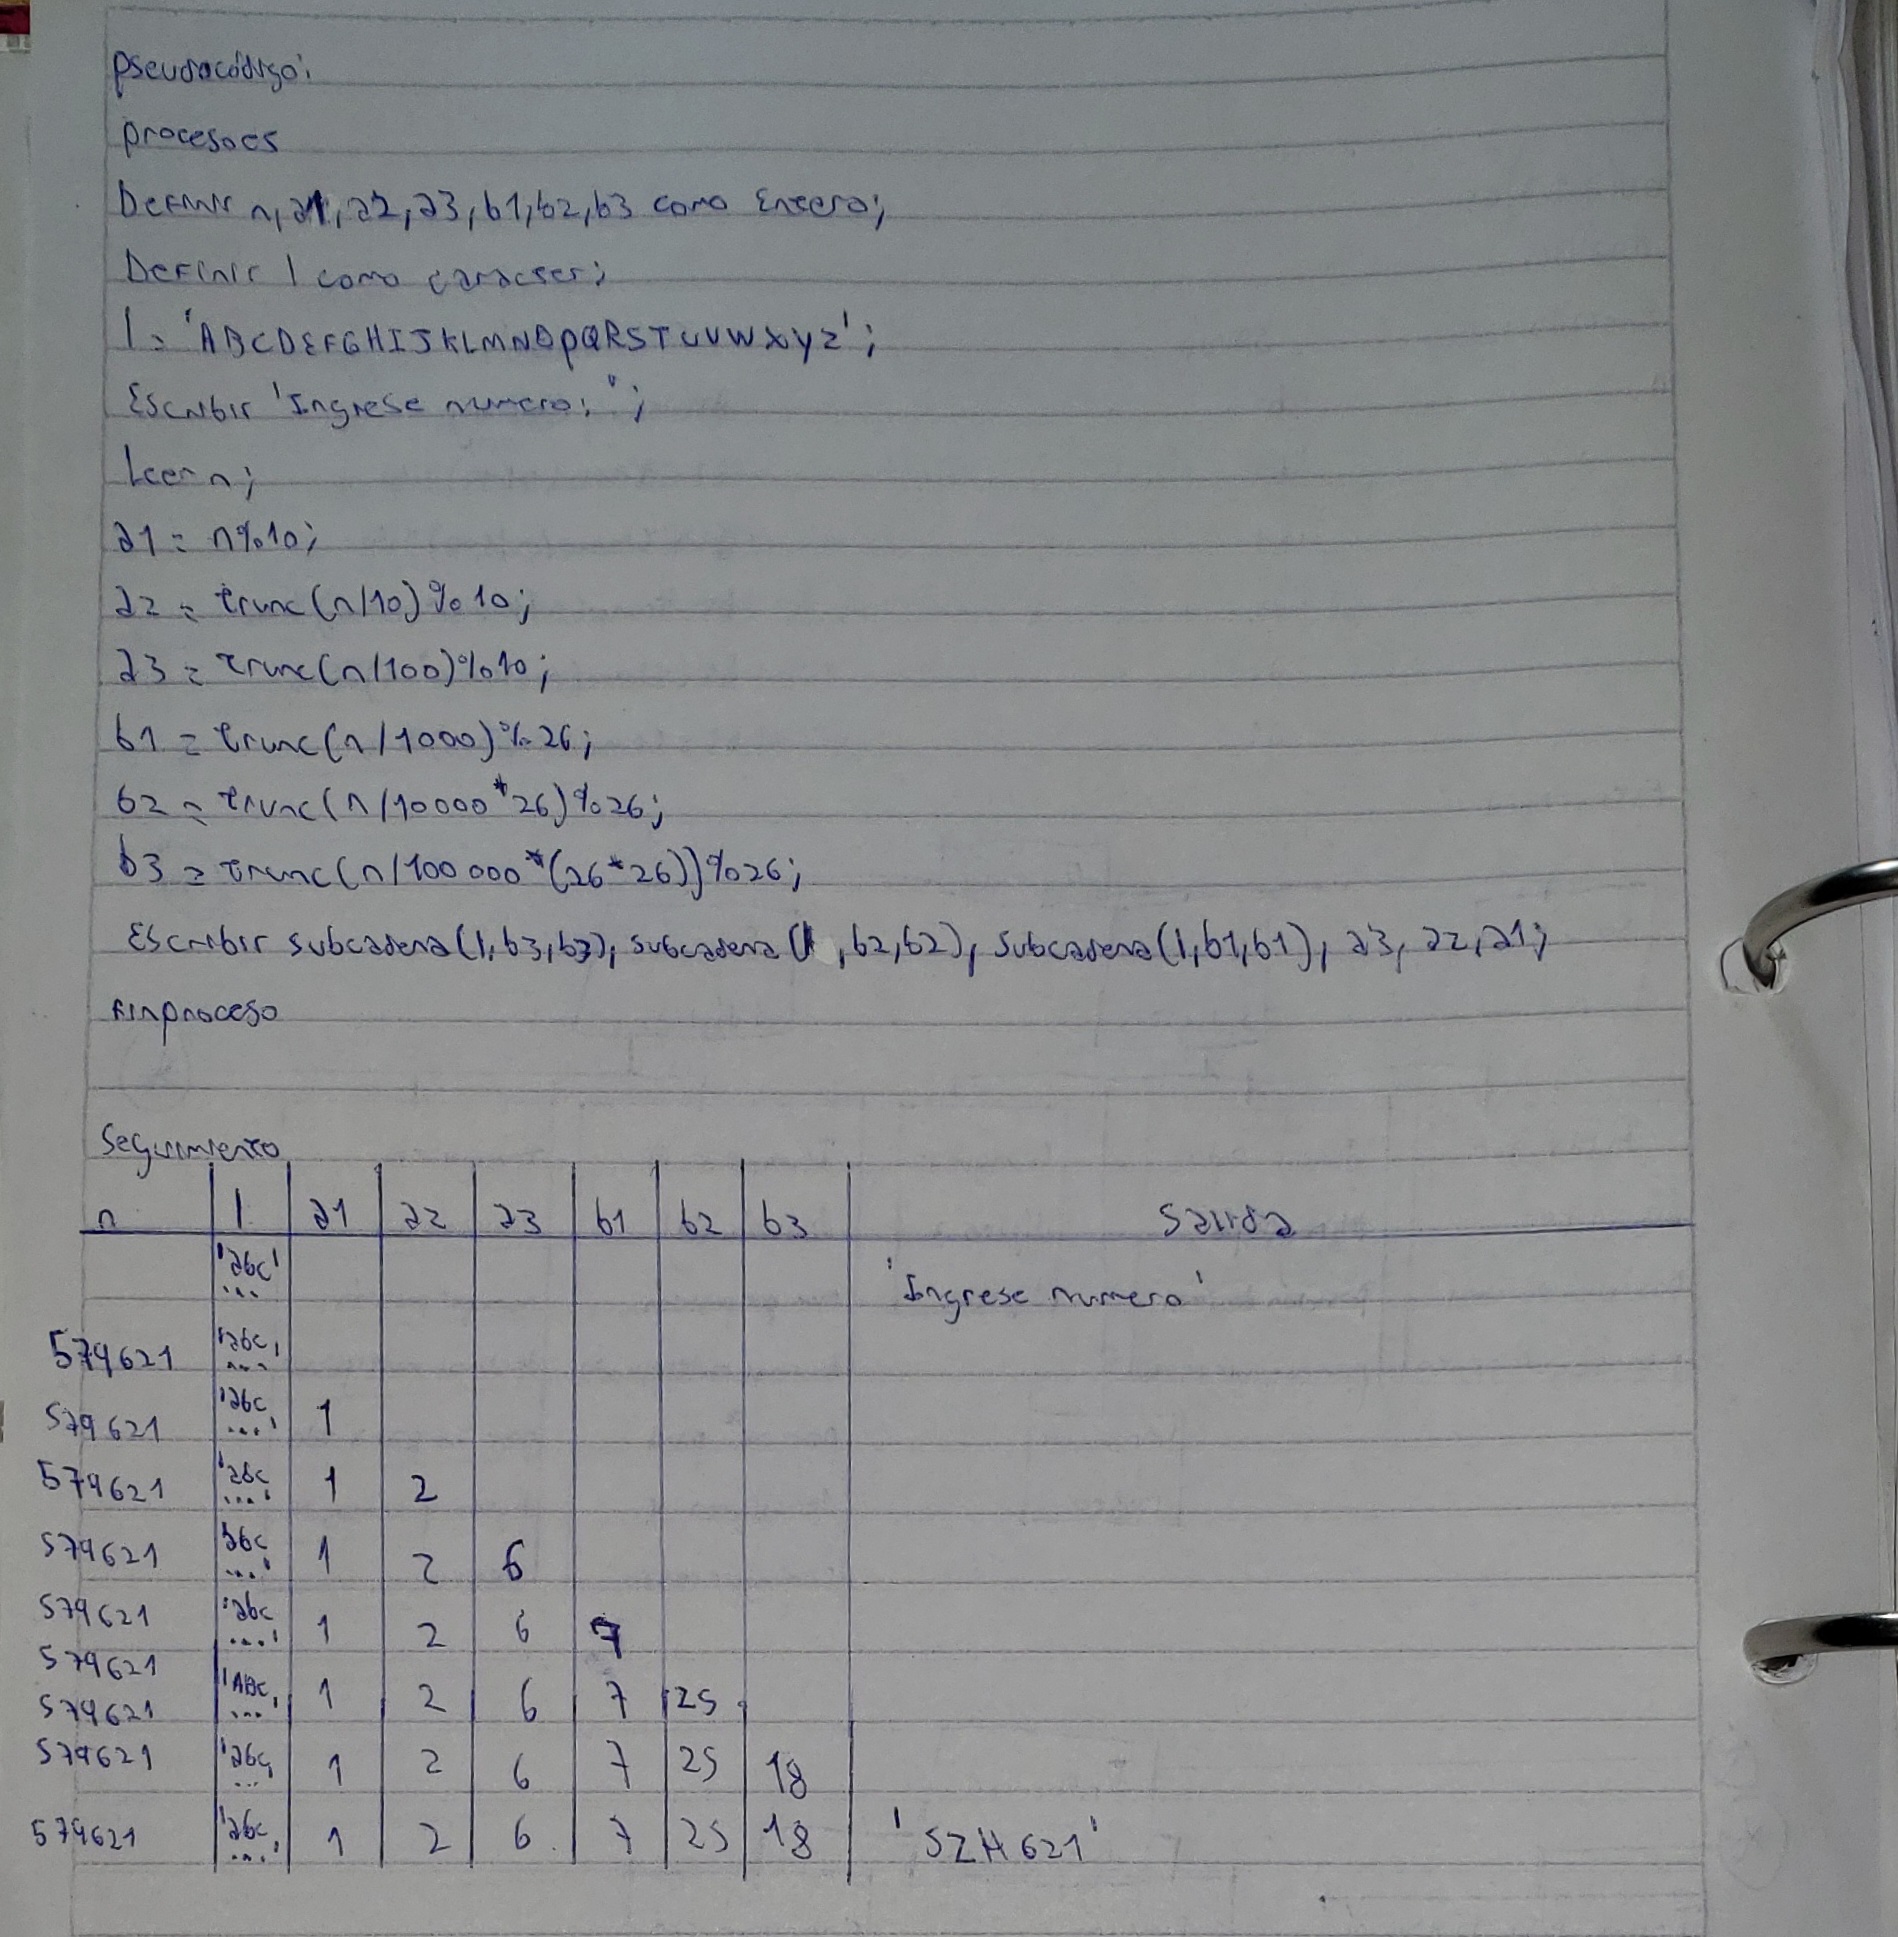 pseudocódigo:
procesoes
Definir n, a1, a2, a3, b1, b2, b3 como Entero;
Definir l como caracter;
l = 'ABCDEFGHIJKLMNOPQRSTUVWXYZ';
Escribir 'Ingrese numero: ';
Leer n;
a1 = n%10;
a2 = trunc(n/10)%10;
a3 = trunc(n/100)%10;
b1 = trunc(n/1000)%26;
b2 = trunc(n/10000*26)%26;
b3 = trunc(n/100000*(26*26))%26;
Escribir subcadena(l,b3,b3), subcadena(l,b2,b2), subcadena(l,b1,b1), a3, a2, a1;
finproceso
Seguimiento
n l a1 a2 a3 b1 b2 b3 Salida
'abc' ... 'Ingrese numero'
579621 'abc, ...
579621 'abc ...' 1
579621 'abc ...' 1 2
579621 'abc ...' 1 2 6
579621 'abc ...' 1 2 6 7
579621
579621 'ABC, ...' 1 2 6 7 25
579621 'abc, ... 1 2 6 7 25 18
579621 'abc, ...' 1 2 6 7 25 18 'SZH621'